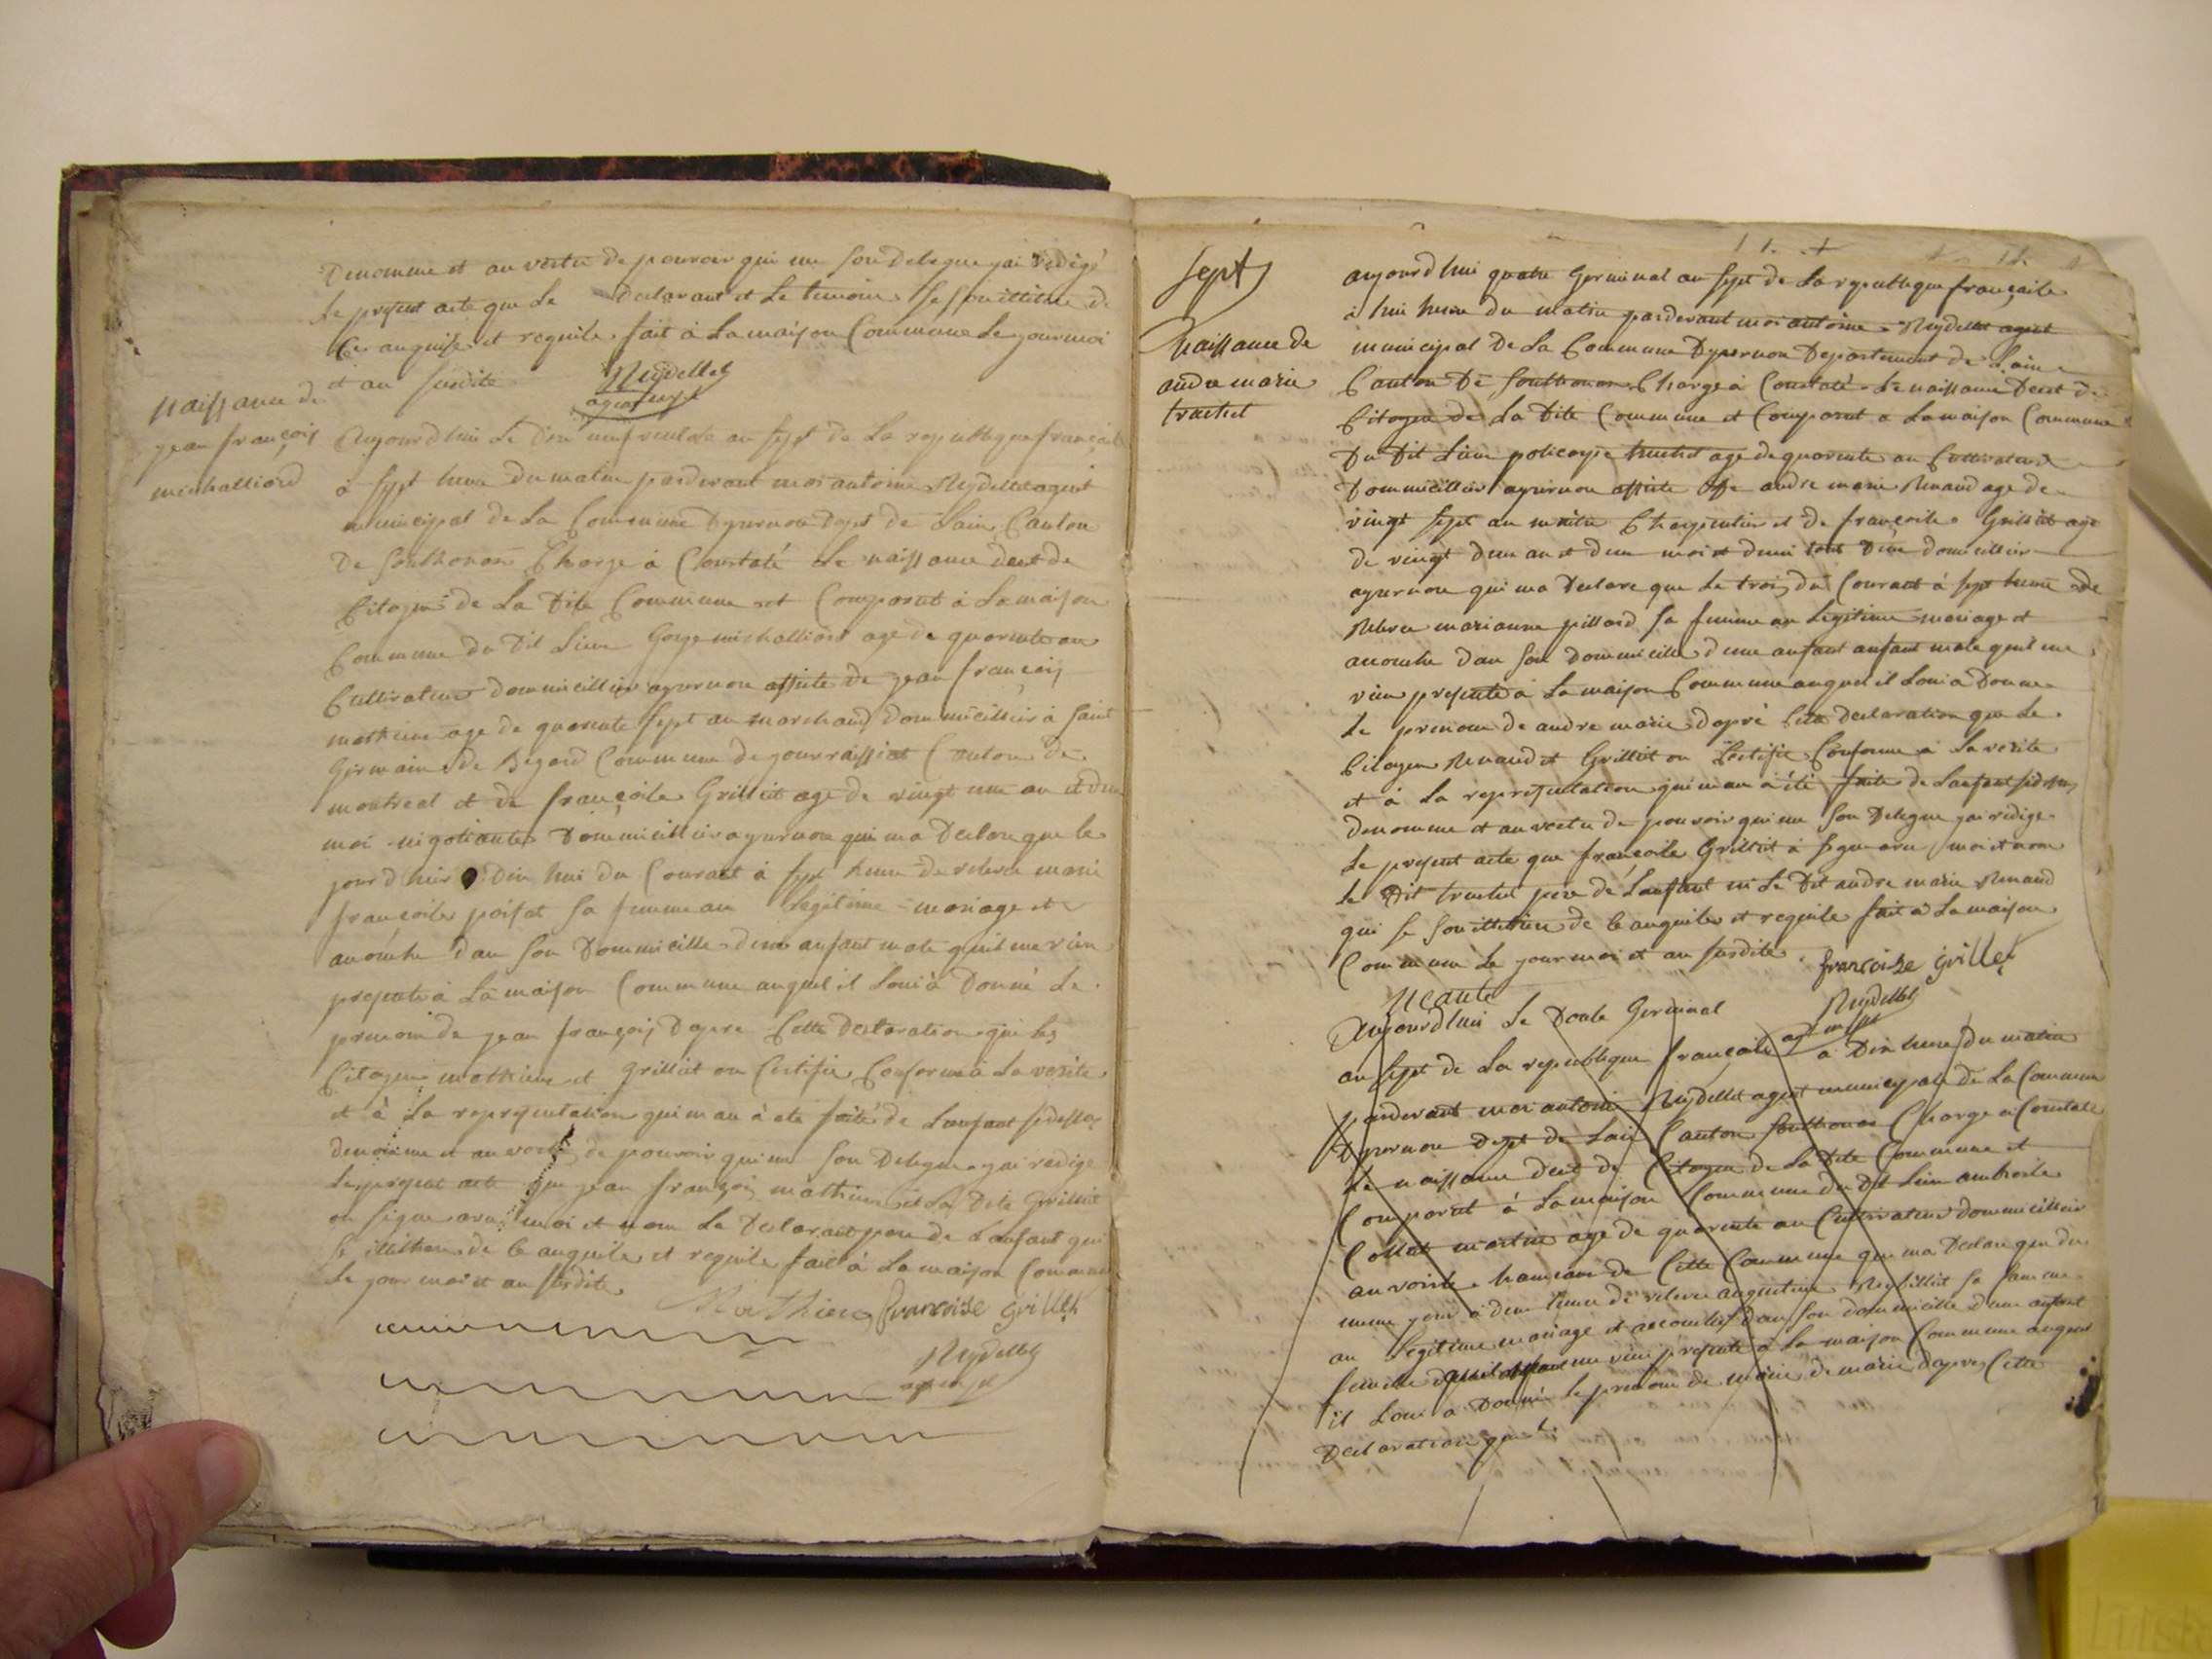 Denomme et au vertu de pouvoir qui me son delegue jai redigé
le present acte que le Declarant et le temoin se son illitere de
Ce anquise et requite fait à la maison Commune le jour moi
et an susdite Reydellet
agent mpl
Naissance de
jean françois
michalliard
Aujourd'hui le dix neuf vantose an sept de la republique française
à sept heure du matin pardevant moi antoine Reydellet agent
municipal de la Commune Dyzernore dept de Lain Canton
De Sonthonan Charge à Constaté le naissance decet de
Citoyens de la Dite Commune et Comparut à la maison
Commune du Dit Lieu Gorge michalliard age de quarente an
Cultivateur dommicillier ayzernore assite de jean françois
mathieu age de quarente sept an marchand dommicillier à saint
Germain de Begard Commune de
montreal et de françoise Grillet age de vingt une an et
moi nigotiante Dommicillier ayzernore qui ma Declare que le
jour d'hier Dix hui du Courant à sept heure de relevee marie
françoise poisat sa femme au legitime mariage et
acouche dan son Dommicille dun anfant male quil me vien
presente à la maison Commune auquel il loui à Donné le
prenom de jean françois Dapre Cette Declaration que les
Citoyen mathieu et Grillet on Certifie Conforme à la verite
et à la representation qui man à ete faite de lanfant sidessus
denomme et au vertu de pouvoir qui me son Delegue jai redige
le present acte que jean françois mathieu et la Dite Grillet
on signe avec moi et nom le Declarant pere de lanfant qui
se illithere de ce anquite et requite fait à la maison Commune
le jour moi et an susdite
Mathieu françoise Grillet
Reydellet
agent mpl
Sept
Naissance de
andre marie
truchet
aujourd'hui quatre Germinal an sept de la republique française
à hui heure du matin pardevant moi antoine Reydellet agent
municipal de la Commune Dyzernore Departement de Lain
Canton de Sonthonan Charge à Constaté le naissance decet de
Citoyen de la Dite Commune et Comparut a la maison Commune
Du Dit Lieu policarpe truchet age de quarente an Cultivateur
Dommicillier ayzernore assiste de andre marie Renaud age de
vingt sept an maitre Charpentier et de françoise Grillet age
de vingt deux an et deux moi et demi tout deux domicillier
ayzernore qui ma Declare que le trois du Courant à sept heure de
Relevee marianne pillard sa femme au legitime mariage et
acouche dan son dommicille dune anfant anfant male quil me
vien presente à la maison Commune auquel il loui à Donne
le prenom de andre marie dapré Cette declaration que le
Citoyen Renaud et Grillet on Certifie Conforme à la verite
et à la representation qui man à été faite de lanfant sidessus
denomme et au vertu de pouvoir qui me son Delegue jai redige
le present acte que françoise Grillet à signe avec moi et nom
le Dit truchet pere de lanfant ni le Dit andre marie Renaud
qui se son illethere de ce anquite et requite fait à la maison
Commune le jour moi et an susdite françoise Grillet
Neante Reydellet
agt mpl
Aujourd'hui le Douse Germinal
an sept de la republique française à Dix heure du matin
pardevant moi antoine Reydellet agent municypale de la Commune
Dyzernore dept de Lain Canton Sonthonan Charge à Constaté
le naissance decet de Citoyen de la Dite Commune et
Comparut à la maison Commune du Dit Lieu ambroise
Collet martin age de quarente an Cultivateur dommicillier
au voirle hameau de Cette Commune qui ma Declare que du
meme jour à deux heure de relevee augustine Reybillet sa famme
au legitime mariage et accouchez dan son dommicille dune anfant
femelle quil me vien presente à la maison Commune auquel
il loui a Donné le prenom de marie de marie dapres Cette
Declaration que le